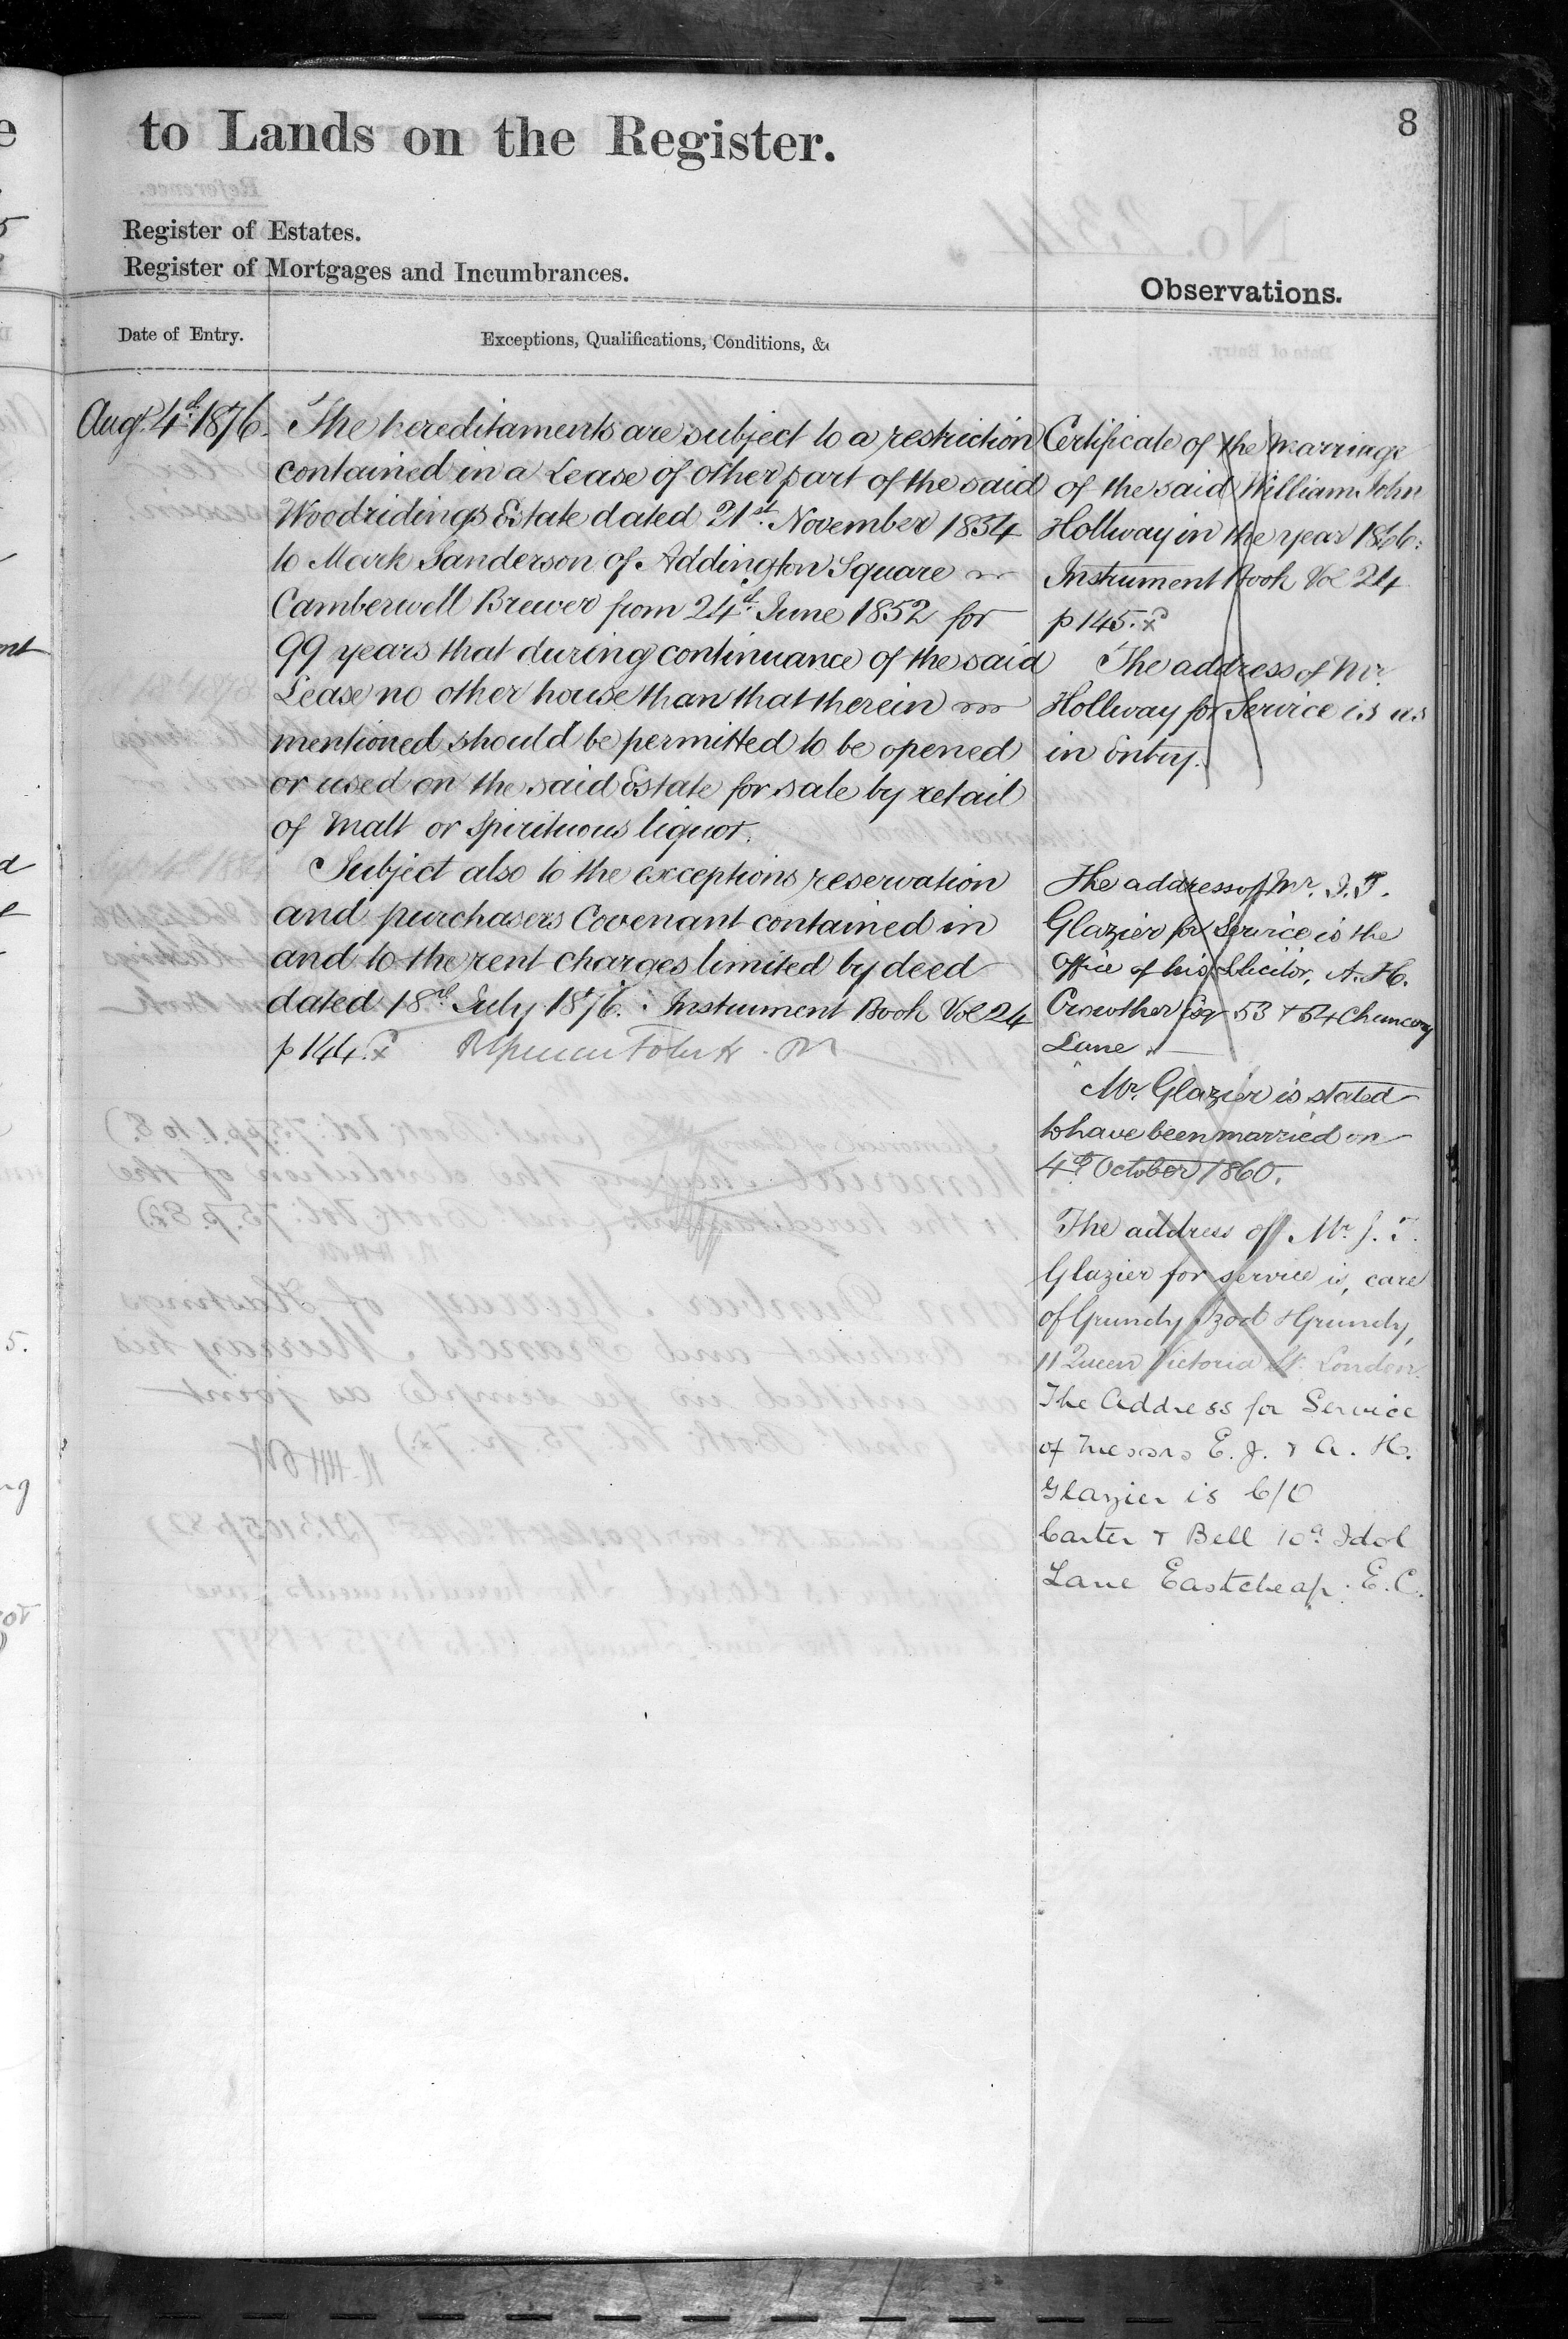 8
to Lands on the Register.
Register of Estates.
Register of Mortgages and Incumbrances.
Observations.
Date of Entry.
Exceptions, Qualifications, Conditions, &c
Augt. 4th 1876.
The hereditaments are subject to a restriction
contained in a Lease of other part of the said
Woodridings Estate dated 21st November 1854
to Mark Sanderson of Addington Square
Camberwell Brewer from 24th June 1852 for
99 years that during continuance of the said
Lease no other house than that therein
mentioned should be permitted to be opened
or used on the said Estate for sale by retail
of Malt or Spirituous liquor.
Subject also to the exceptions reservation
and purchasers Covenant contained in
and to the rent charges limited by deed
dated 18th July 1876. Instrument Book Vol 24
p 144.
Certificate of the Marriage
of the said William John
Hollway in the year 1866:
Instrument Book Vol 24
p 145.
The address of Mr.
Hollway for Service is as
in Entry.
The address of Mr. J. T.
Glazier for Service is the
Office of his Solicitor, A. H.
Crowther Esq 53 & 54 Chancery
Lane.
Mr. Glazier is stated
to have been married on
4th October 1860.
The address of Mr. J. T.
Glazier for service is, care
of Grundy Izod & Grundy,
11 Queen Victoria St. London.
The Address for Service
of Messrs E. J. & A. H.
Glazier is C/O
Carter & Bell 10a Idol
Lane Eastcheap. E.C.